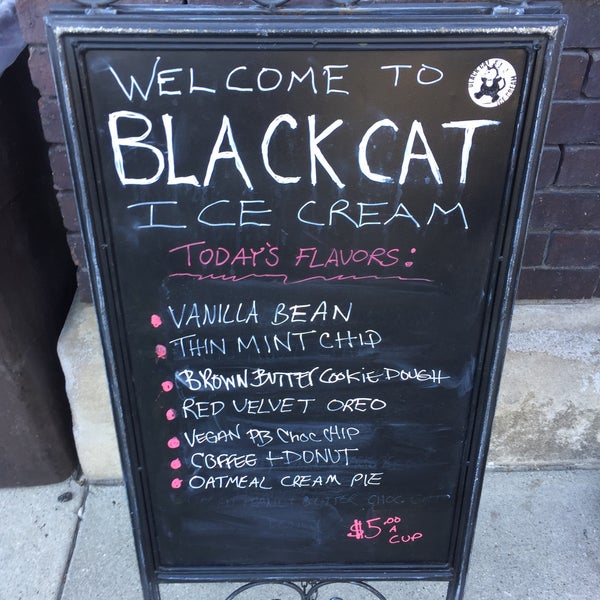 WELCOME TO
BLACK CAT
ICE CREAM
TODAY'S FLAVORS:
• VANILLA BEAN
• THIN MINT CHIP
• BROWN BUTTER COOKIE DOUGH
• RED VELVET OREO
• VEGAN PB CHOC CHIP
• COFFEE + DONUT
• OATMEAL CREAM PIE
$5.00
A
CUP